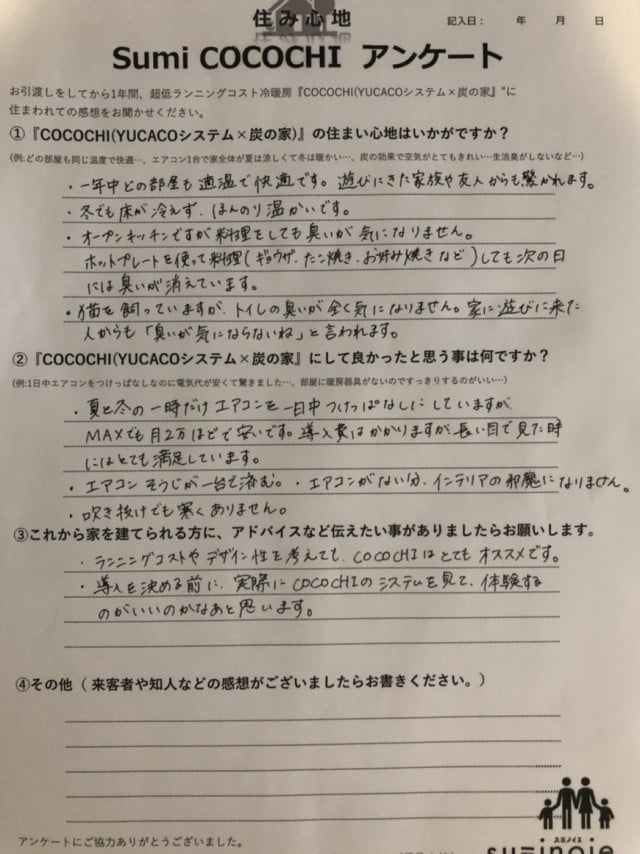 住み心地
記入日： 年 月 日
Sumi COCOCHI アンケート
お引渡しをしてから1年間、超低ランニングコスト冷暖房『COCOCHI(YUCACOシステム×炭の家』"に
住まわれての感想をお聞かせください。
①『COCOCHI(YUCACOシステム×炭の家)』の住まい心地はいかがですか？
(例:どの部屋も同じ温度で快適…、エアコン1台で家全体が夏は涼しくて冬は暖かい…、炭の効果で空気がとてもきれい…生活臭がしないなど…)
・一年中どの部屋も適温で快適です。遊びにきた家族や友人からも驚かれます。
・冬でも床が冷えず、ほんのり温かいです。
・オープンキッチンですが料理をしても臭いが気になりません。
ホットプレートを使って料理(ギョウザ、たこ焼き、お好み焼きなど)しても次の日
には臭いが消えています。
・猫を飼っていますが、トイレの臭いが全く気になりません。家に遊びに来た
人からも「臭いが気にならないね」と言われます。
②『COCOCHI(YUCACOシステム×炭の家』にして良かったと思う事は何ですか？
(例:1日中エアコンをつけっぱなしなのに電気代が安くて驚きました…、部屋に暖房器具がないのですっきりするのがいい…)
・夏と冬の一時だけエアコンを一日中つけっぱなしにしていますが、
MAXでも月2万ほどで安いです。導入費はかかりますが長い目で見た時
にはとても満足しています。
・エアコンそうじが一台で済む。・エアコンがない分、インテリアの邪魔になりません。
・吹き抜けでも寒くありません。
③これから家を建てられる方に、アドバイスなど伝えたい事がありましたらお願いします。
・ランニングコストやデザイン性を考えても、COCOCHIはとてもオススメです。
・導入を決める前に、実際にCOCOCHIのシステムを見て、体験する
のがいいのかなあと思います。
④その他（ 来客者や知人などの感想がございましたらお書きください。）
アンケートにご協力ありがとうございました。
スミノイエ
suminoie